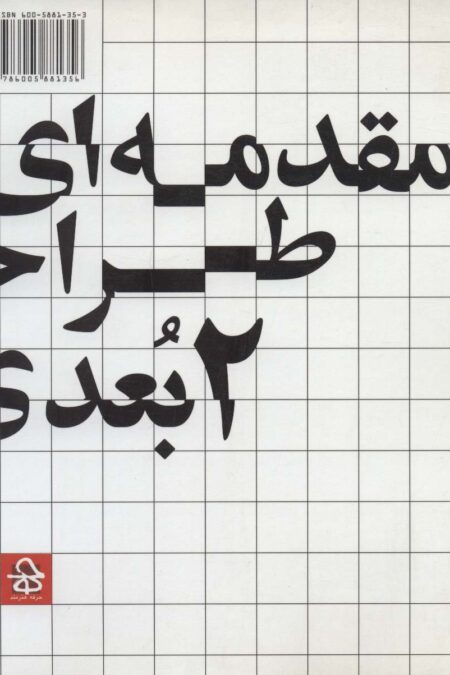 ISBN 600-5881-35-3
786005881356
مقدمه‌ای
طراح
۲ بُعدی
حرفه هنرمند